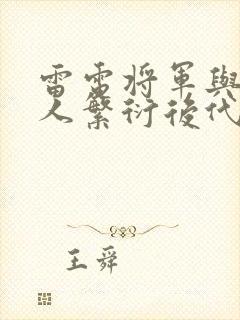 雷雷将軍與
人繁衍後代
王舜